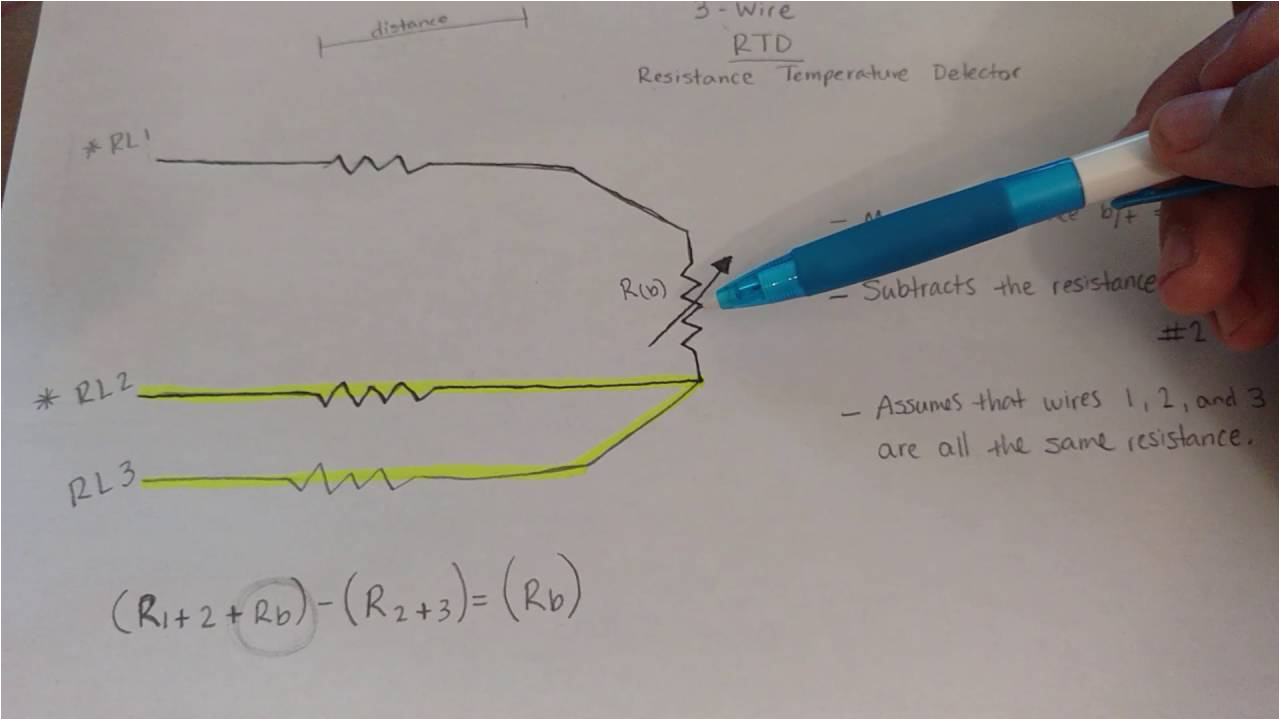 distance
3-Wire
RTD
Resistance Temperature Detector
* RL1
b/t
R(b)
- Subtracts the resistance
#2
* RL2
- Assumes that wires 1, 2, and 3
are all the same resistance.
RL3
(R1+2+Rb)-(R2+3)=(Rb)